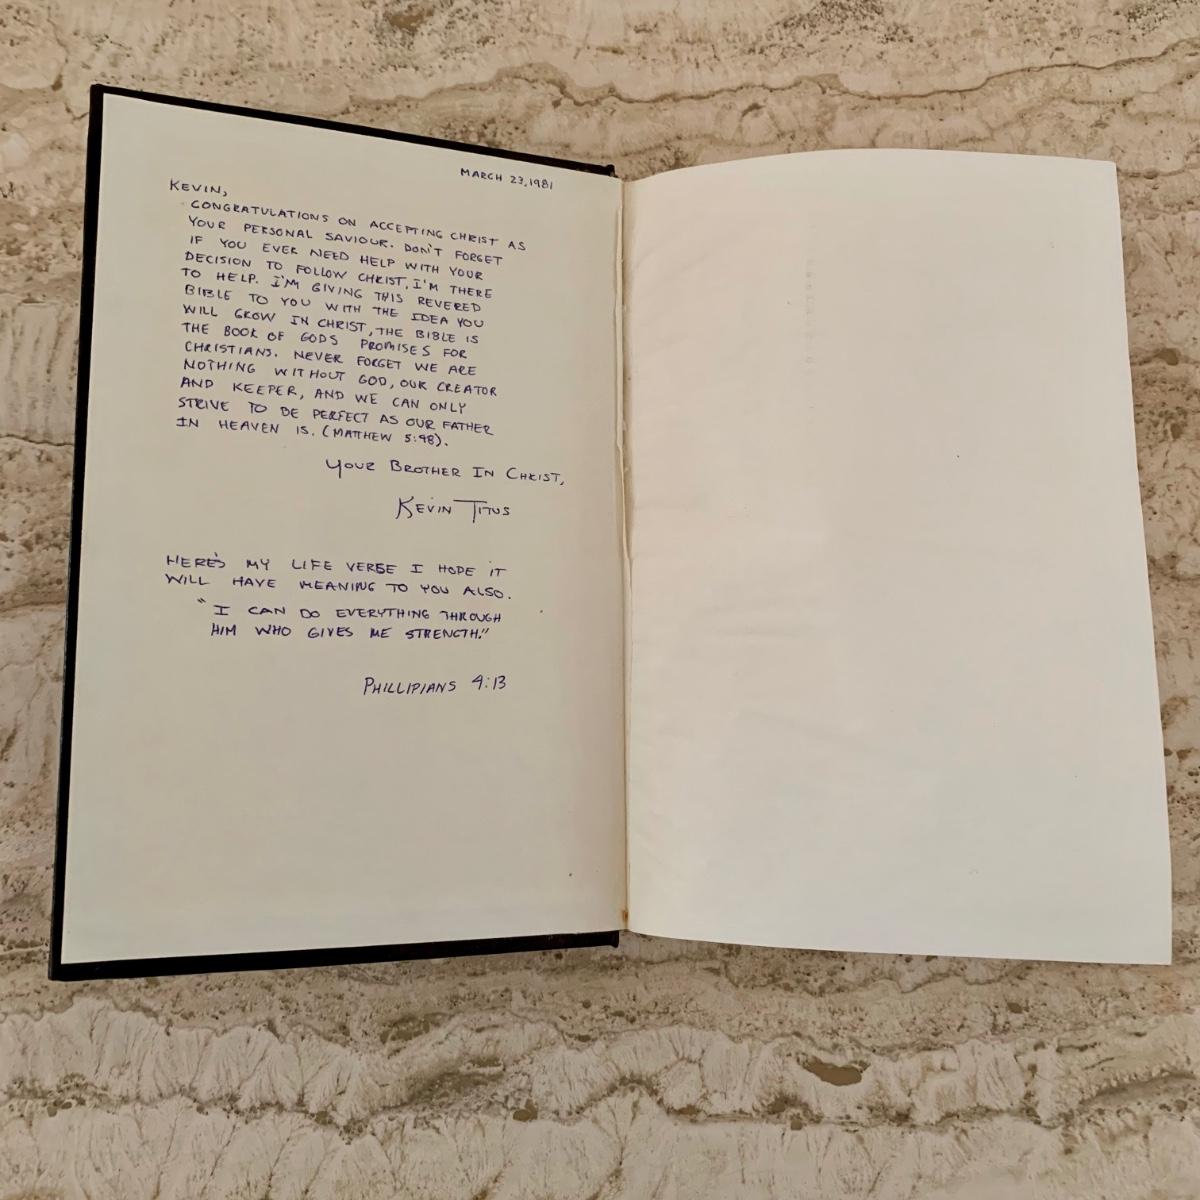 MARCH 23, 1981
KEVIN,
CONGRATULATIONS ON ACCEPTING CHRIST AS
YOUR PERSONAL SAVIOUR. DON'T FORGET
IF YOU EVER NEED HELP WITH YOUR
DECISION TO FOLLOW CHRIST, I'M THERE
TO HELP. I'M GIVING THIS REVERED
BIBLE TO YOU WITH THE IDEA YOU
WILL GROW IN CHRIST, THE BIBLE IS
THE BOOK OF GODS PROMISES FOR
CHRISTIANS. NEVER FORGET WE ARE
NOTHING WITHOUT GOD, OUR CREATOR
AND KEEPER, AND WE CAN ONLY
STRIVE TO BE PERFECT AS OUR FATHER
IN HEAVEN IS. (MATTHEW 5:48).
YOUR BROTHER IN CHRIST,
KEVIN TITUS
HERE'S MY LIFE VERSE I HOPE IT
WILL HAVE MEANING TO YOU ALSO.
"I CAN DO EVERYTHING THROUGH
HIM WHO GIVES ME STRENGTH."
PHILLIPIANS 4:13